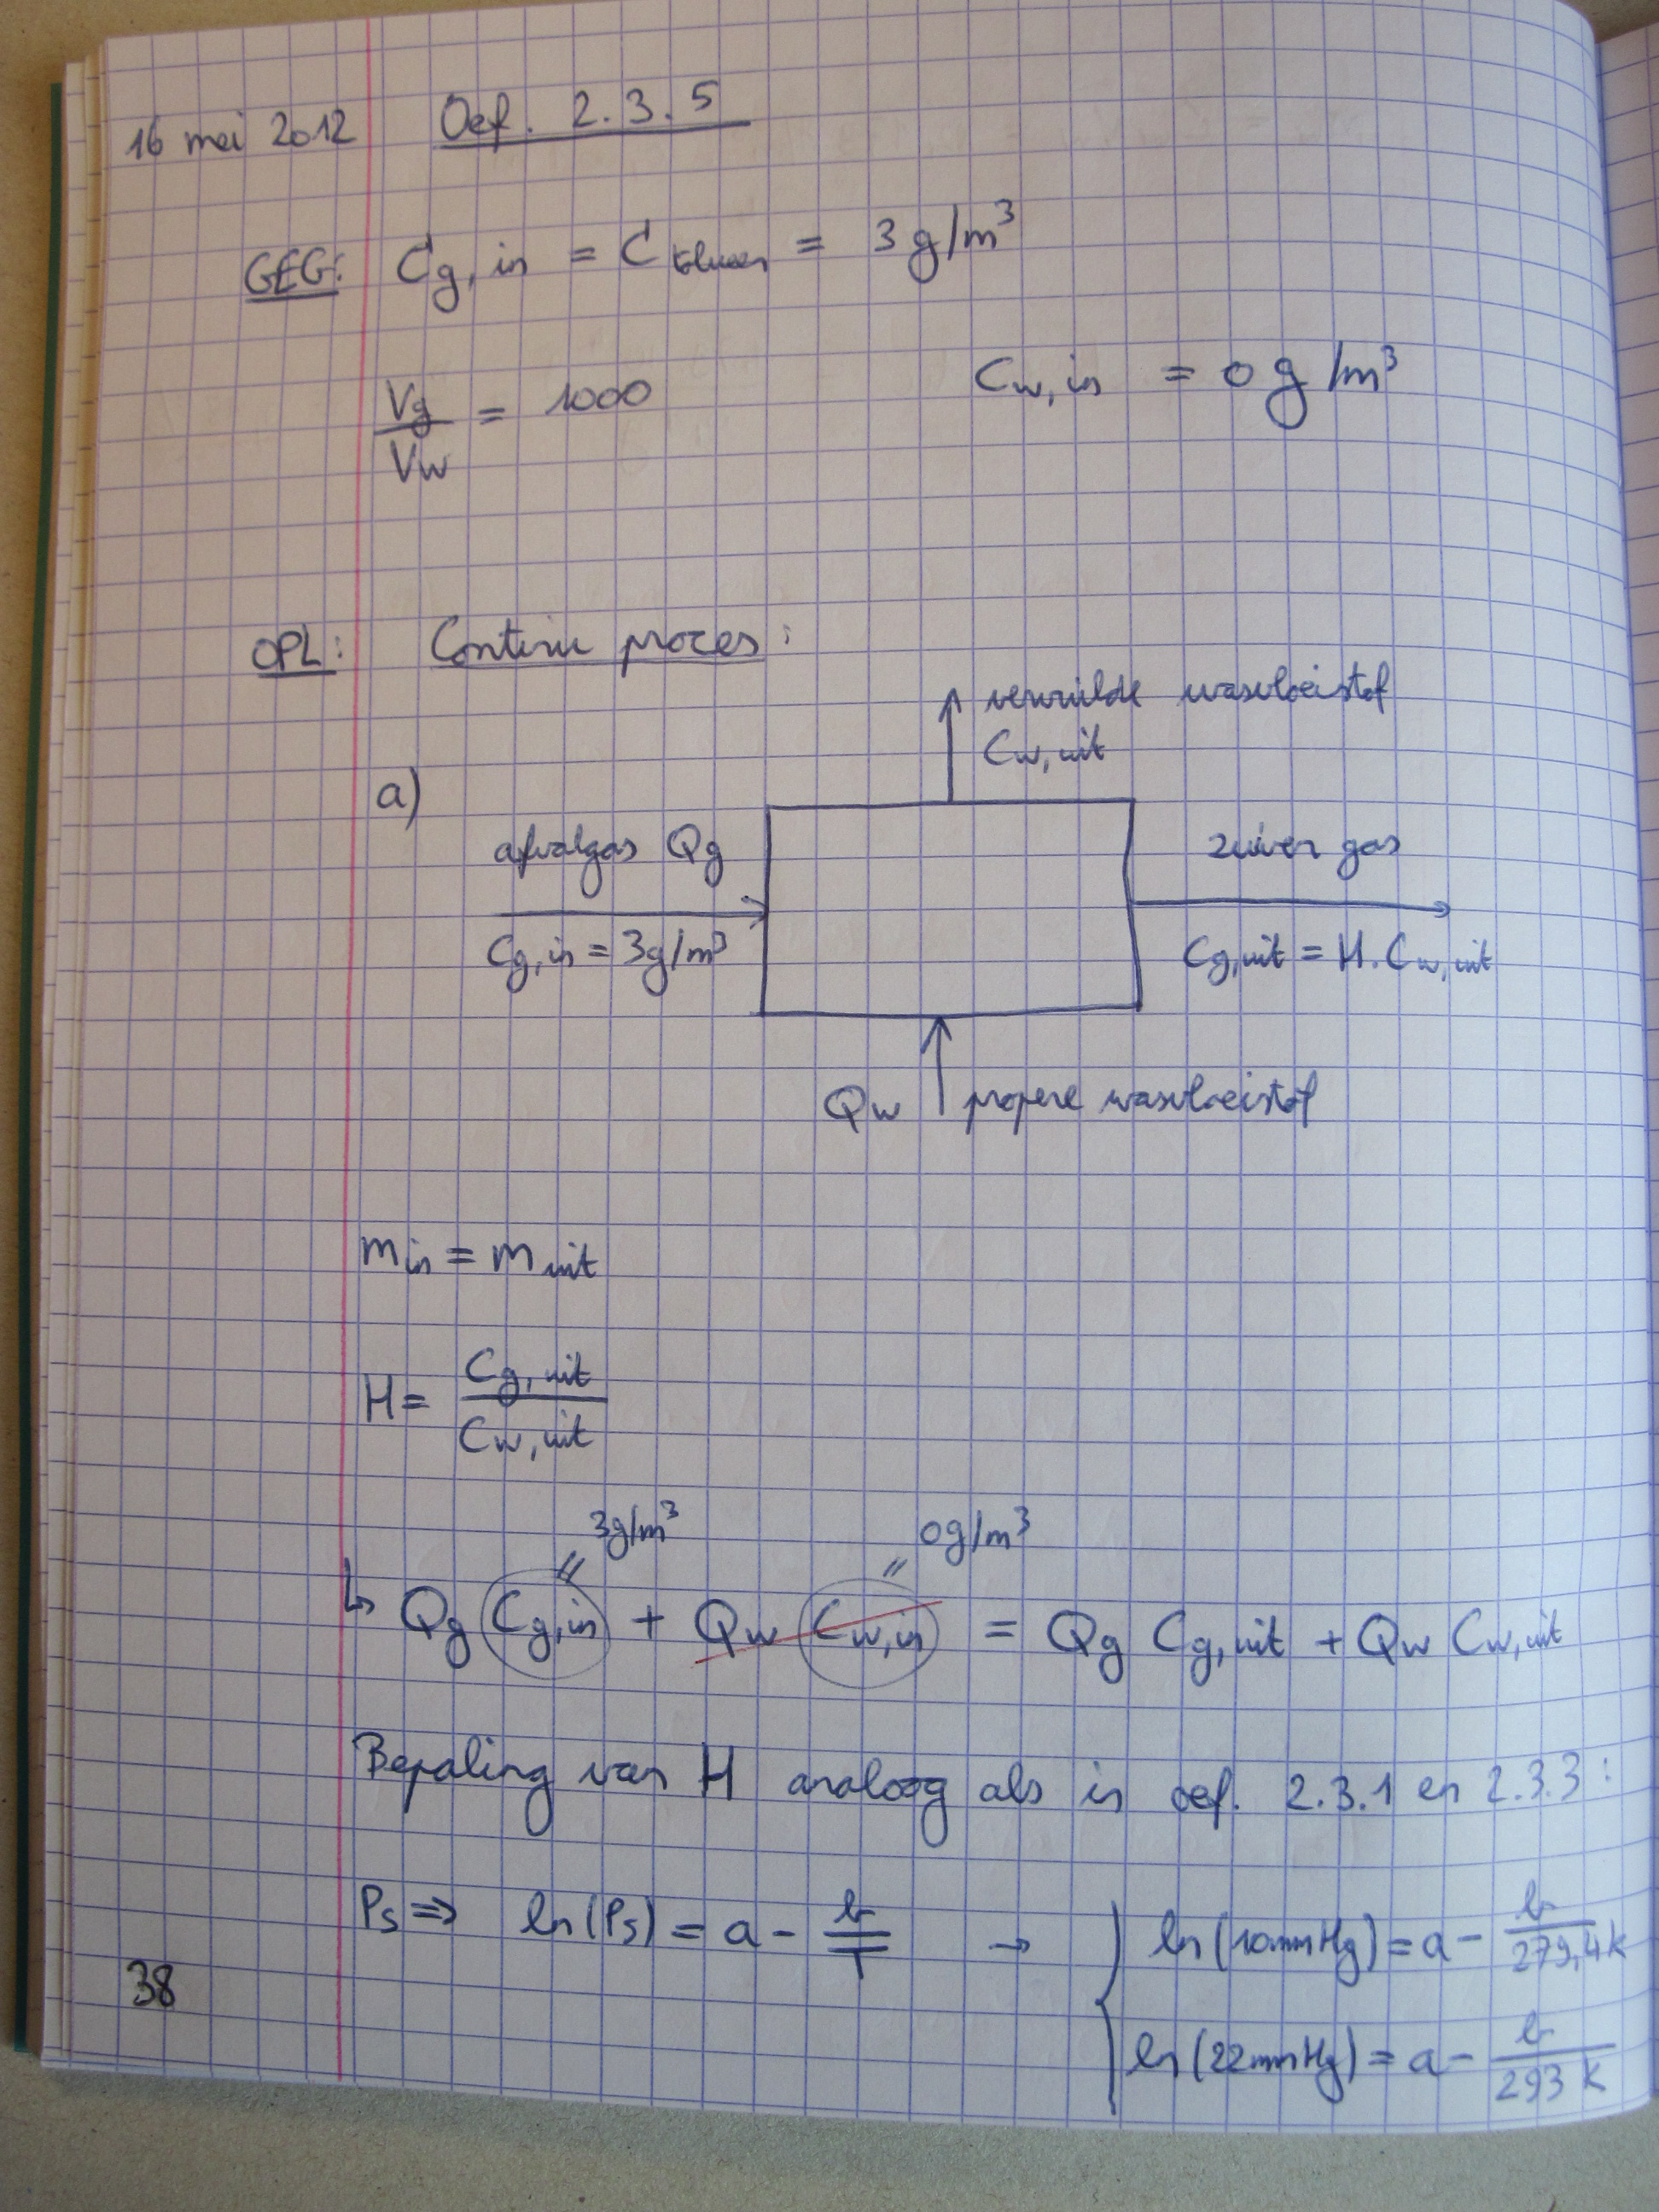 16 mei 2012 Oef. 2.3.5
GEG: Cg,in = Ctolueen = 3 g/m³
Vg/Vw = 1000 Cw,in = 0 g/m³
OPL: Continu proces:
vervuilde wasvloeistof
Cw,uit
a)
afvalgas Qg
Cg,in = 3g/m³
zuiver gas
Cg,uit = H.Cw,uit
Qw propere wasvloeistof
min = muit
H = Cg,uit/Cw,uit
3g/m³ 0g/m³
↳ Qg Cg,in + Qw Cw,in = Qg Cg,uit + Qw Cw,uit
Bepaling van H analoog als in oef. 2.3.1 en 2.3.3:
Ps ⇒ ln(Ps) = a - b/T → { ln(10mmHg) = a - b/279,4K
ln(22mmHg) = a - b/293 K
38